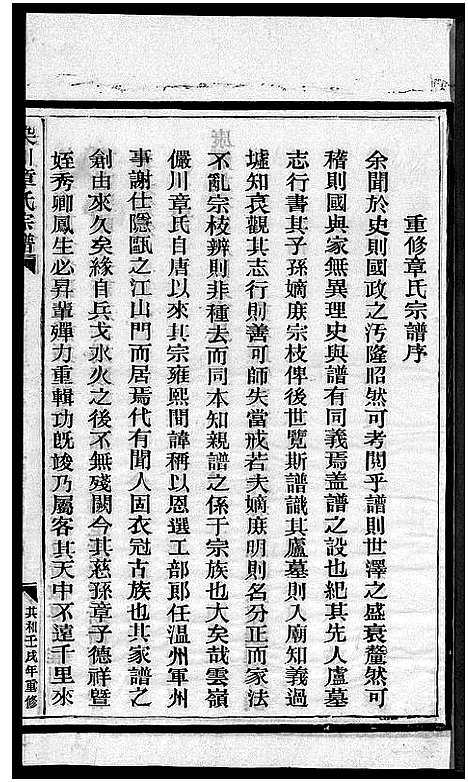 重修章氏宗譜序
余聞於史則國政之汚隆昭然可考閱乎譜則世澤之盛衰釐然可
稽則國與家無異理史與譜有同義焉盖譜之設也紀其先人廬墓
志行書其子孫嫡庶宗枝俾後世覽斯譜識其廬墓則入廟知義過
墟知哀觀其志行則善可師失當戒若夫嫡庶明則名分正而家法
不亂宗枝辨則非種去而同本知親譜之係于宗族也大矣哉雲嶺
儼川章氏自唐以來其宗雍熙間諱稱以恩選工部郎任溫州軍州
事謝仕隱甌之江山門而居焉代有聞人固衣冠古族也其家譜之
創由來久矣緣自兵戈水火之後不無殘闕今其慈孫章子德祥暨
姪秀卿鳳生必昇輩殫力重輯功旣竣乃屬客其天中不遠千里來
川章氏宗譜
共和壬戌年重修